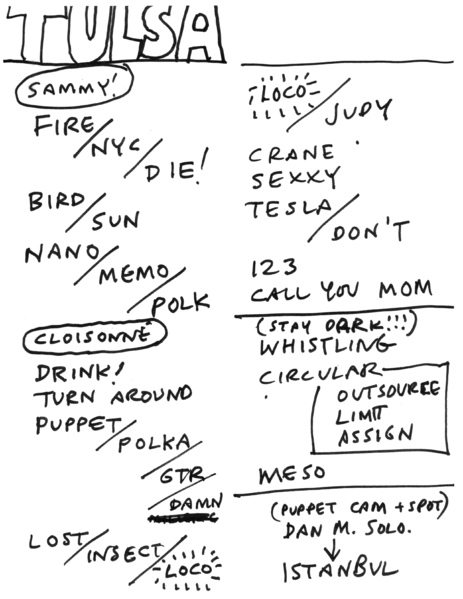 TULSA
SAMMY!
FIRE/
NYC/
DIE!
BIRD/
SUN
NANO/
MEMO/
POLK
CLOISONNÉ
DRINK!
TURN AROUND
PUPPET/
POLKA/
GTR/
DAMN
LOST/INSECT/
LOCO
LOCO/
JUDY
CRANE
SEXXY
TESLA/
DON'T
123
CALL YOU MOM
(STAY DARK!!!)
WHISTLING
CIRCULAR
OUTSOURCE
LIMIT
ASSIGN
MESO
(PUPPET CAM + SPOT)
DAN M. SOLO.
↓
ISTANBUL